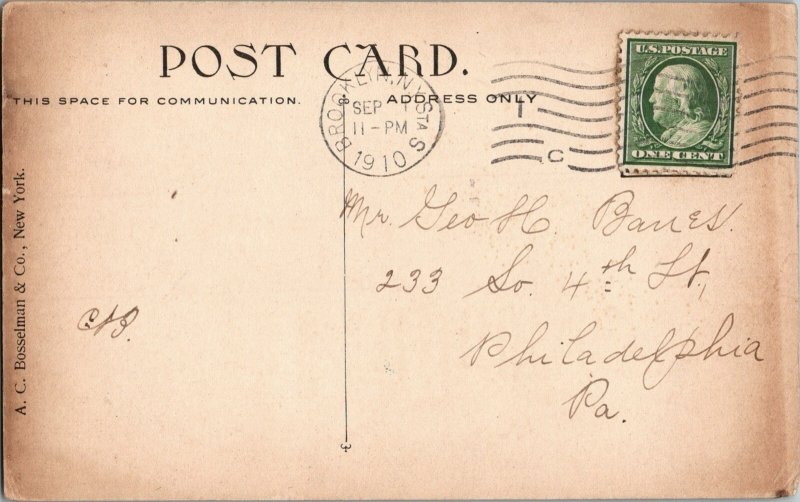 POST CARD.
THIS SPACE FOR COMMUNICATION.
ADDRESS ONLY
BROOKLYN, N.Y. STA S
SEP
11-PM
1910
T
C
U.S. POSTAGE
ONE CENT
A. C. Bosselman & Co., New York.
Mr. Geo H.
233 So. 4th St.,
Philadelphia
Pa.